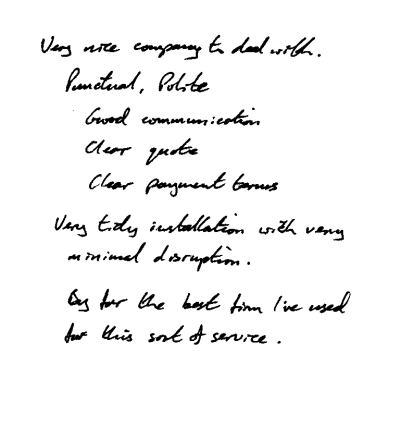 Very nice company to deal with.
Punctual, Polite
Good communication
Clear quote
Clear payment terms
Very tidy installation with very
minimal disruption.
By far the best firm I've used
for this sort of service.